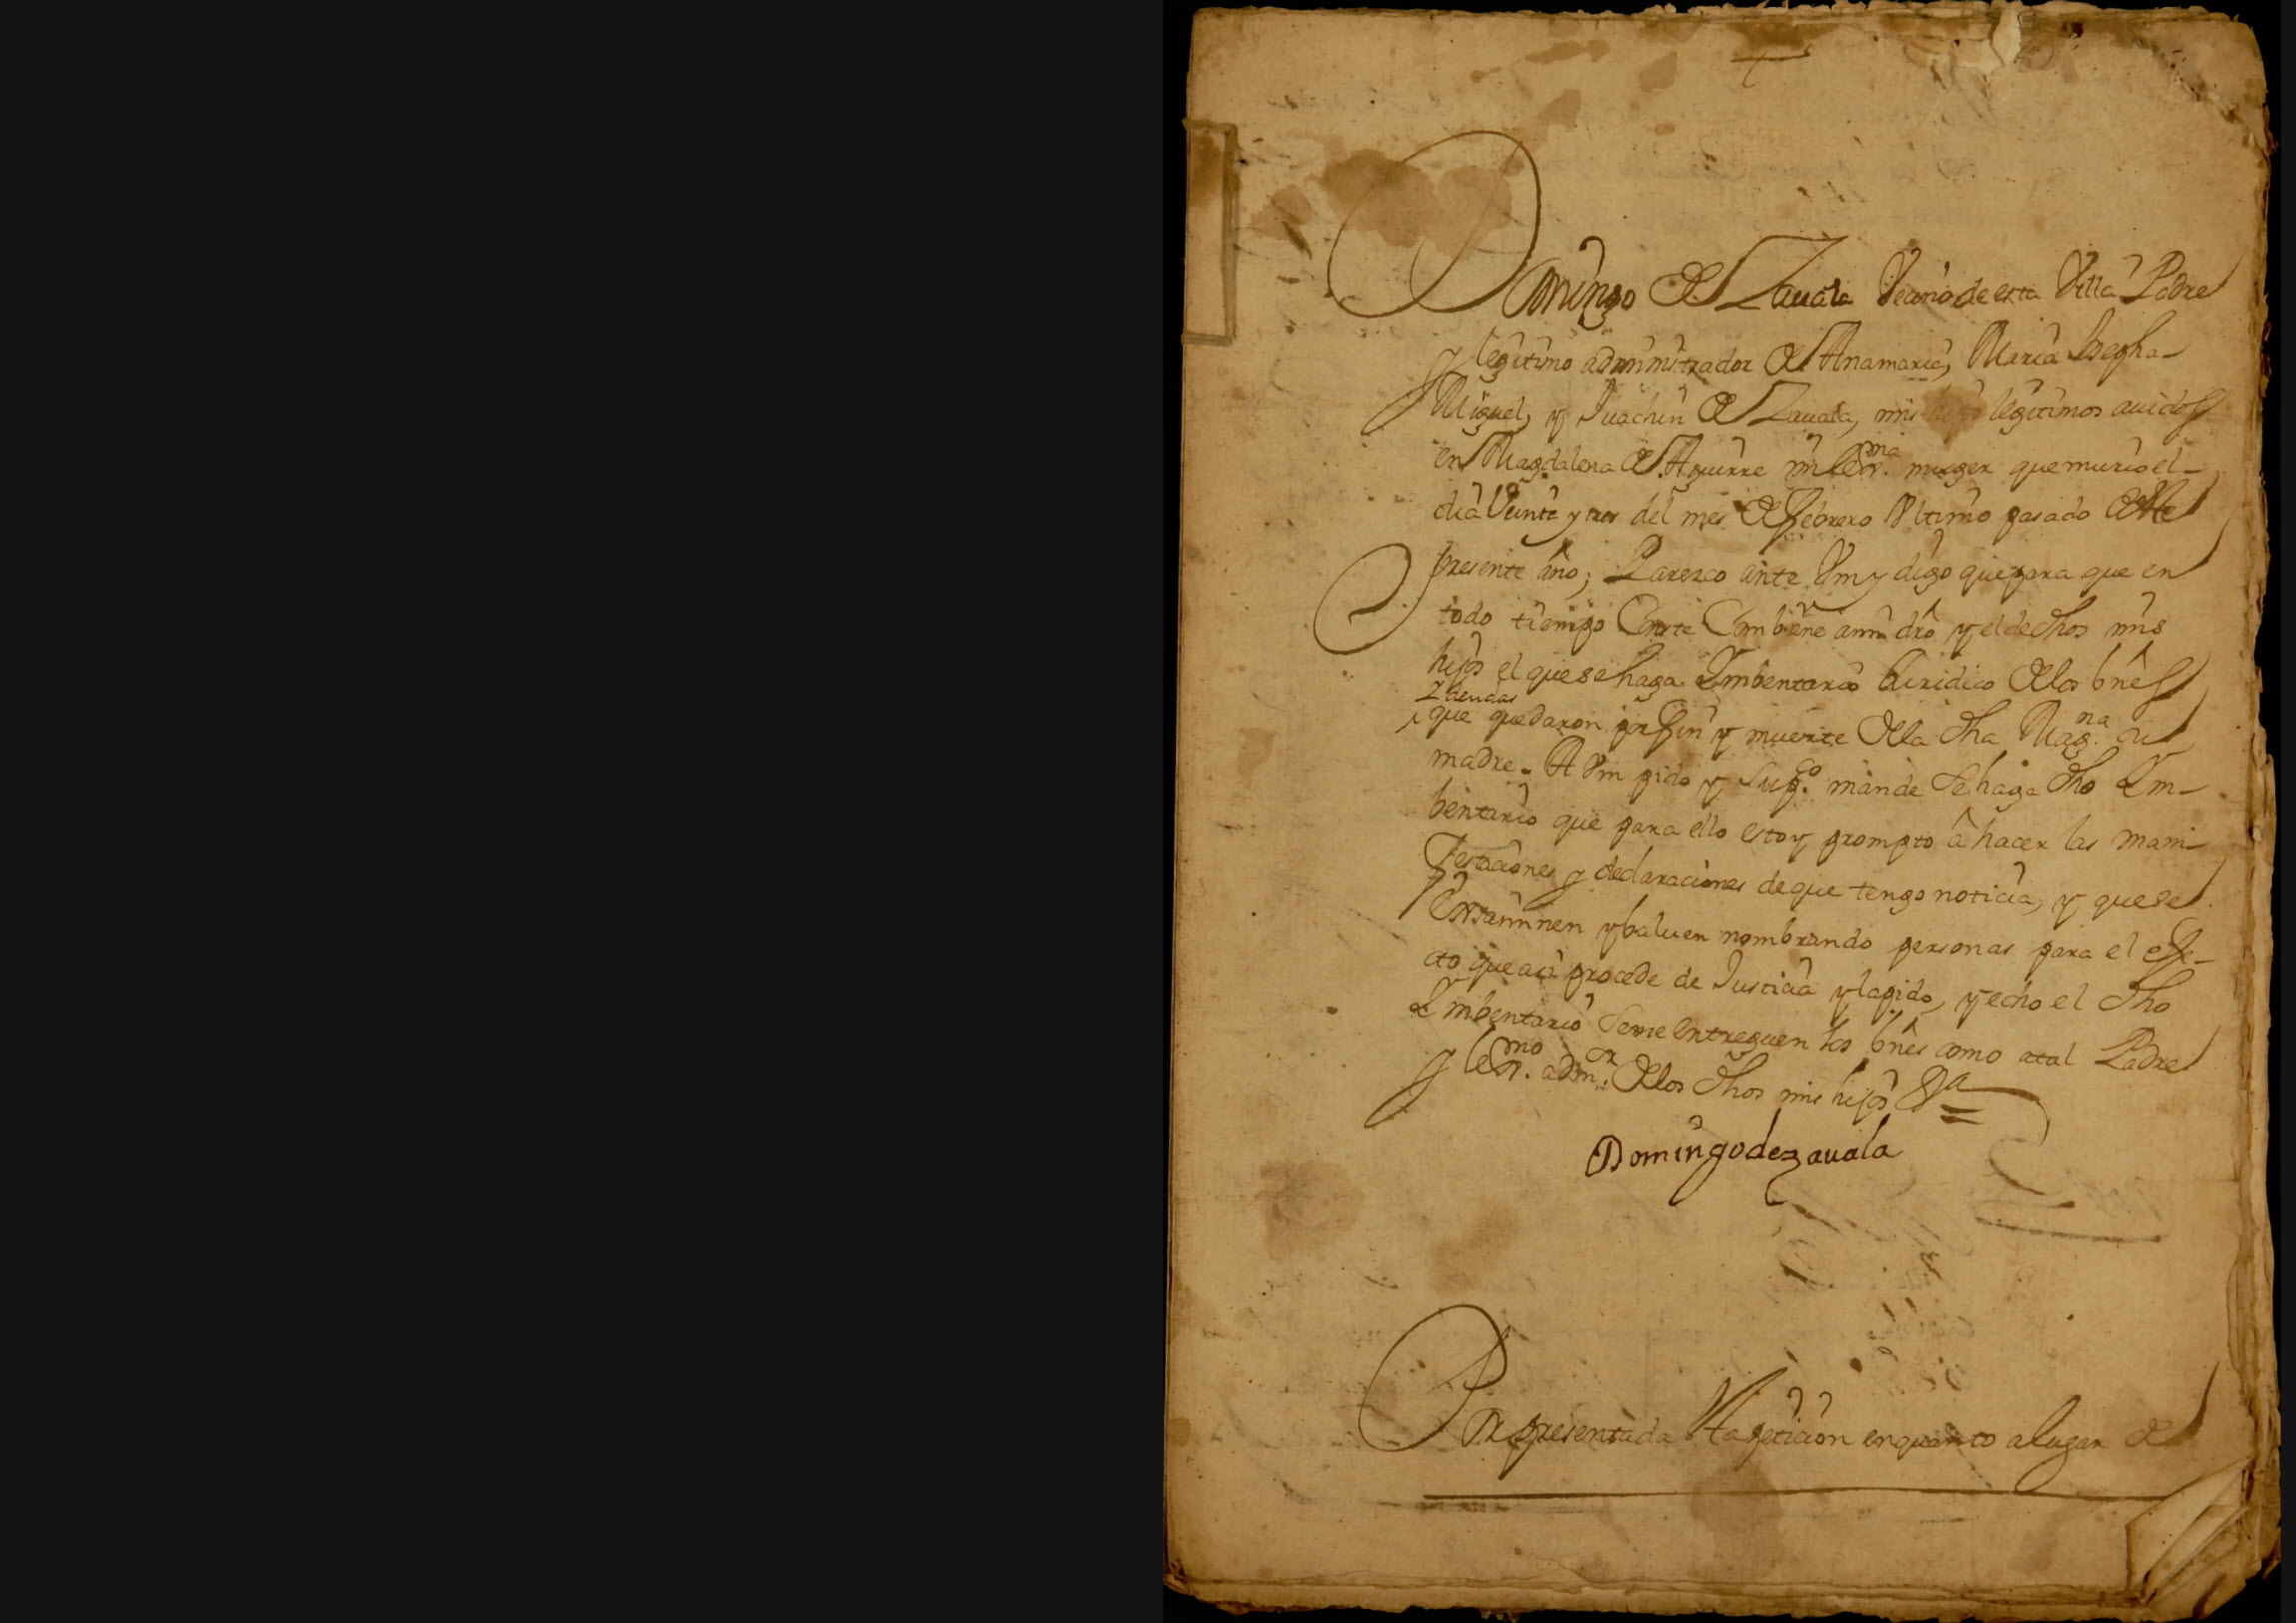 Domingo de Zauala Vecino de esta Villa Padre
y legitimo administrador de Anamaria, Maria Josepha
Miguel, y Juachin de Zauala, mis legitimos auidos
en Magdalena de Aguirre mi lexma. muger que murio el
dia Veinte y tres del mes de Febrero Vltimo pasado deste
presente año; Parezco ante Vm y digo que para que en
todo tiempo Conste Combiene a mi dro y el de dhos mis
hijos el que se haga Imbentario Juridico de los bnes
Y deudas
que quedaron por fin y muerte de la dha Magna. su
madre. A Vm pido y supco. mande se haga dho Im-
bentario que para ello estoy prompto â hacer las mani-
festaciones y declaraciones de que tengo noticia, y que se
Exsaminen y baluen nombrando personas para el effe-
cto que asi procede de Justicia y la pido, y echo el dho
Imbentario Se me Entreguen los bnes como a tal Padre
y lexmo. admor. de los dhos mis hijos
Domingo de zauala
Por presentada Esta peticion en quanto a lugar de